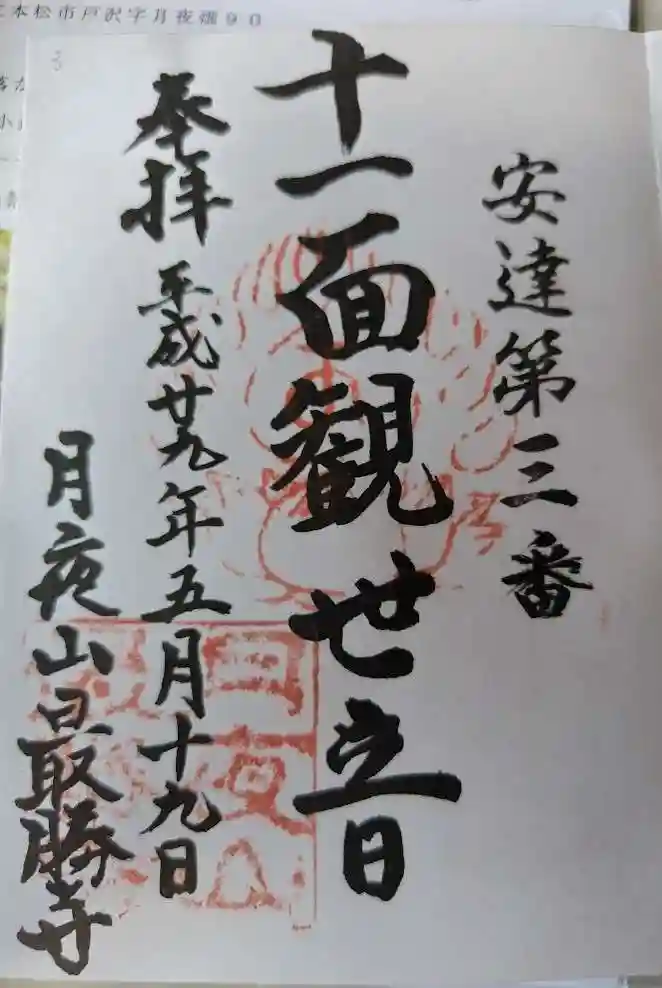 二本松市戸沢字月夜畑90
安達第三番
十一面観世音
奉拝
平成廿九年五月十九日
月夜山最勝寺